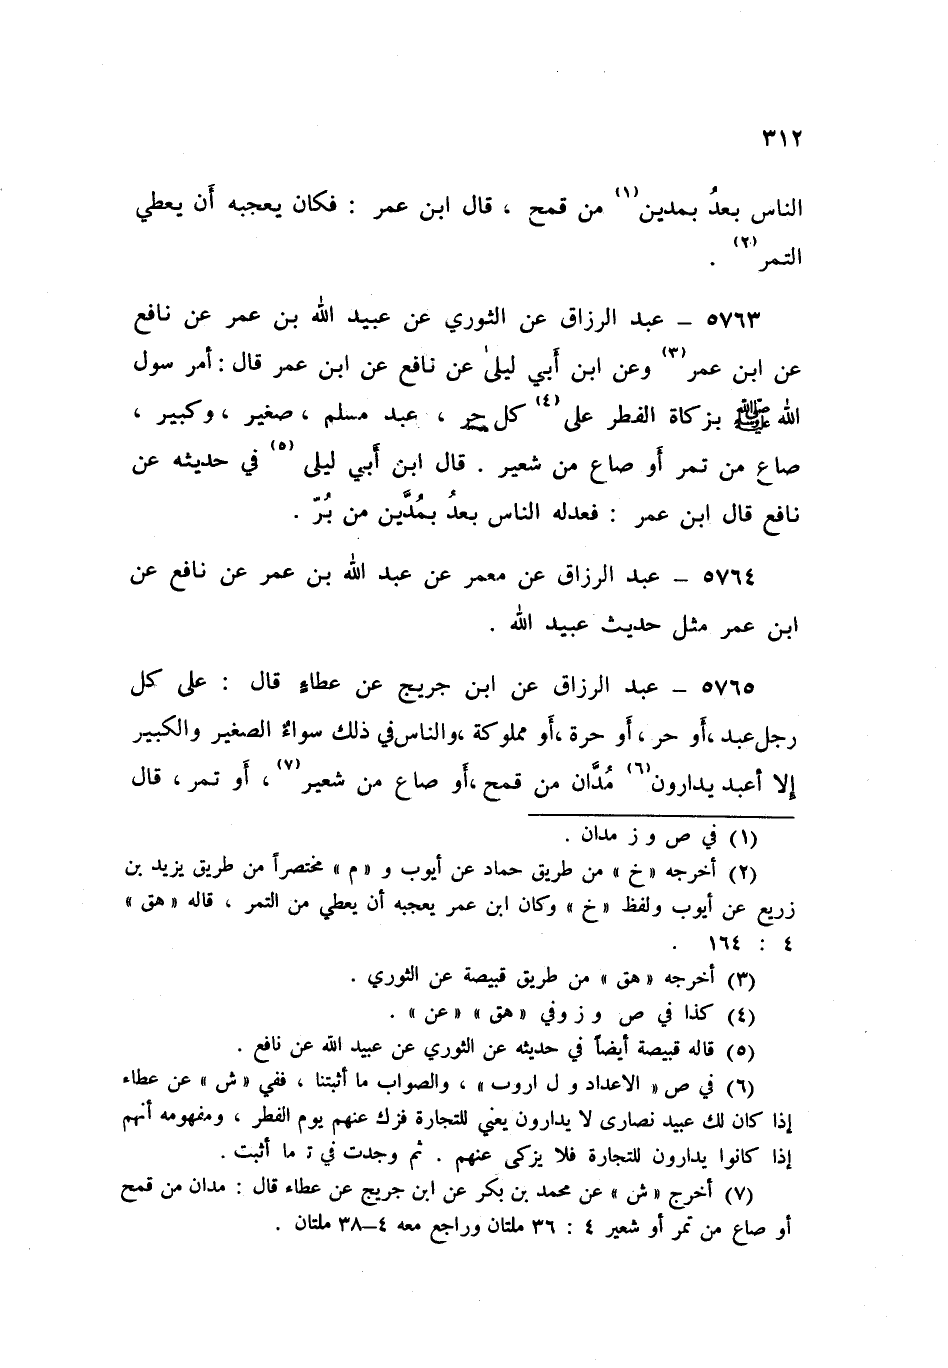 ٣١٢
الناس بعدُ بمدين(١) من قمح ، قال ابن عمر : فكان يعجبه أَن يعطي
التمر(٢) .
٥٧٦٣ – عبد الرزاق عن الثوري عن عبيد الله بن عمر عن نافع
عن ابن عمر(٣) وعن ابن أَبي ليلىٰ عن نافع عن ابن عمر قال : أمر سول
الله ﷺ بزكاة الفطر على(٤) كل حر ، عبد مسلم ، صغير ، وكبير ،
صاع من تمر أَو صاع من شعير . قال ابن أَبي ليلى (٥) في حديثه عن
نافع قال ابن عمر : فعدله الناس بعدُ بمُدَّين من بُرّ .
٥٧٦٤ – عبد الرزاق عن معمر عن عبد الله بن عمر عن نافع عن
ابن عمر مثل حديث عبيد الله .
٥٧٦٥ – عبد الرزاق عن ابن جريج عن عطاءٍ قال : على كل
رجل عبد ،أَو حر ، أَو حرة ،أَو مملوكة ،والناس في ذلك سواءٌ الصغير والكبير
إلا أعبد يدارون(٦) مُدَّان من قمح ،أَو صاع من شعير(٧) ، أَو تمر ، قال
(١) في ص و ز مدان .
(٢) أخرجه « خ » من طريق حماد عن أيوب و « م » مختصراً من طريق يزيد بن
زريع عن أيوب ولفظ « خ » وكان ابن عمر يعجبه أن يعطي من التمر ، قاله « هق »
٤ : ١٦٤ .
(٣) أخرجه « هق » من طريق قبيصة عن الثوري .
(٤) كذا في ص و ز وفي « هق » « عن » .
(٥) قاله قبيصة أيضاً في حديثه عن الثوري عن عبيد الله عن نافع .
(٦) في ص « الاعداد و ل اروب » ، والصواب ما أثبتنا ، ففي « ش » عن عطاء
إذا كان لك عبيد نصارى لا يدارون يعني للتجارة فزك عنهم يوم الفطر ، ومفهومه أنهم
إذا كانوا يدارون للتجارة فلا يزكى عنهم . ثم وجدت في ز ما أثبت .
(٧) أخرج « ش » عن محمد بن بكر عن ابن جريج عن عطاء قال : مدان من قمح
أو صاع من تمر أو شعير ٤ : ٣٦ ملتان وراجع معه ٤–٣٨ ملتان .